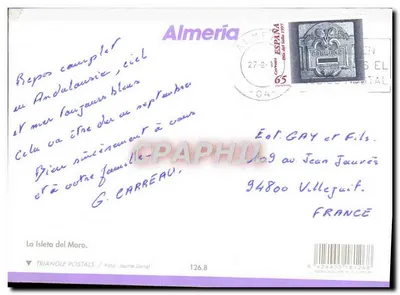 Almería
Repos complet
en Andalousie, ciel
et mer toujours bleus
Cela va être dur en septembre
Bien sincèrement à vous
et à votre famille
G. CARREAU.
ESPAÑA
Correos
65
27-8-
-04-
Ets GAY et Fils.
109 av Jean Jaurès
94800 Villejuif.
FRANCE
CPAPHIL
La Isleta del Moro.
TRIANGLE POSTALS
126.8